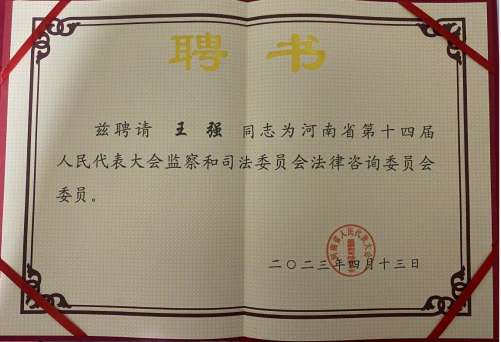 聘书
兹聘请 王强 同志为河南省第十四届
人民代表大会监察和司法委员会法律咨询委员会
委员。
二〇二三年四月十三日